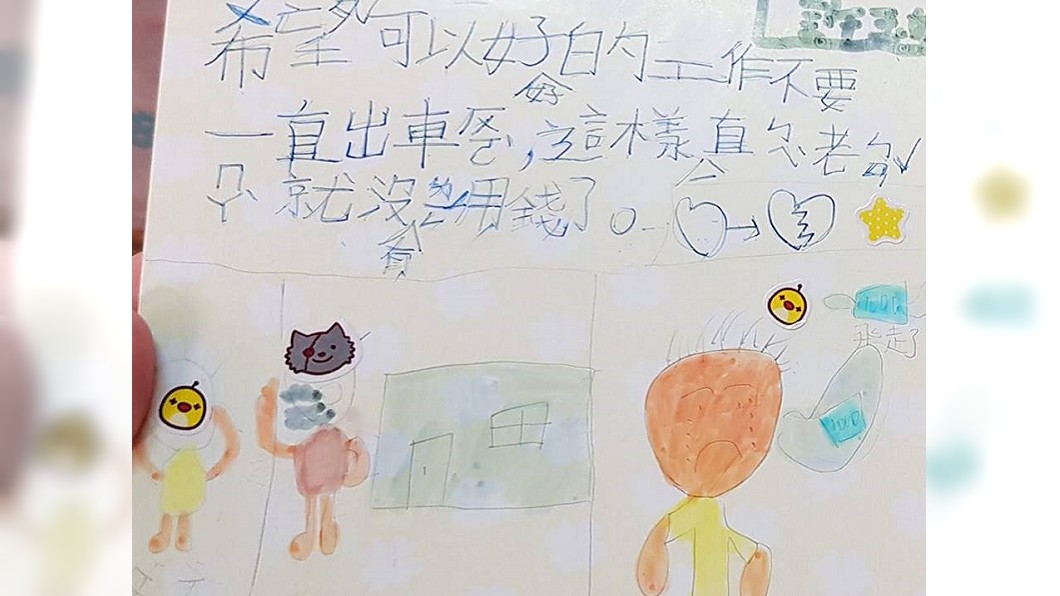 希望可以好白勺工作不要
好
一直出車,這樣直老
就沒用錢了。
有
100
100
飛走了